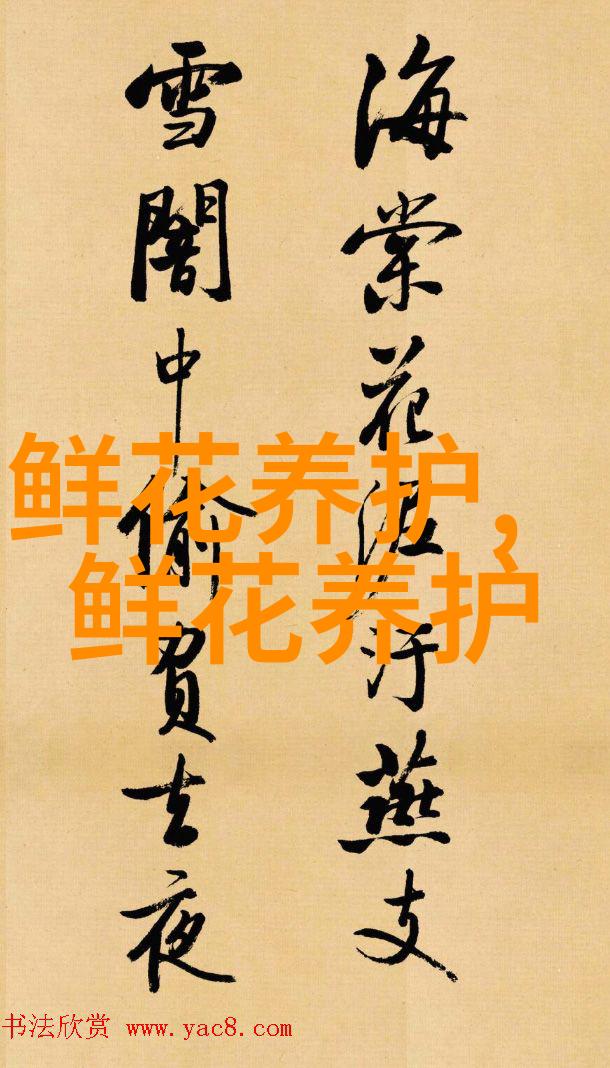 海棠花泥汙燕支
雪闇中偷負去夜
鲜花养护，
鲜花养护
书法欣赏 www.yac8.com